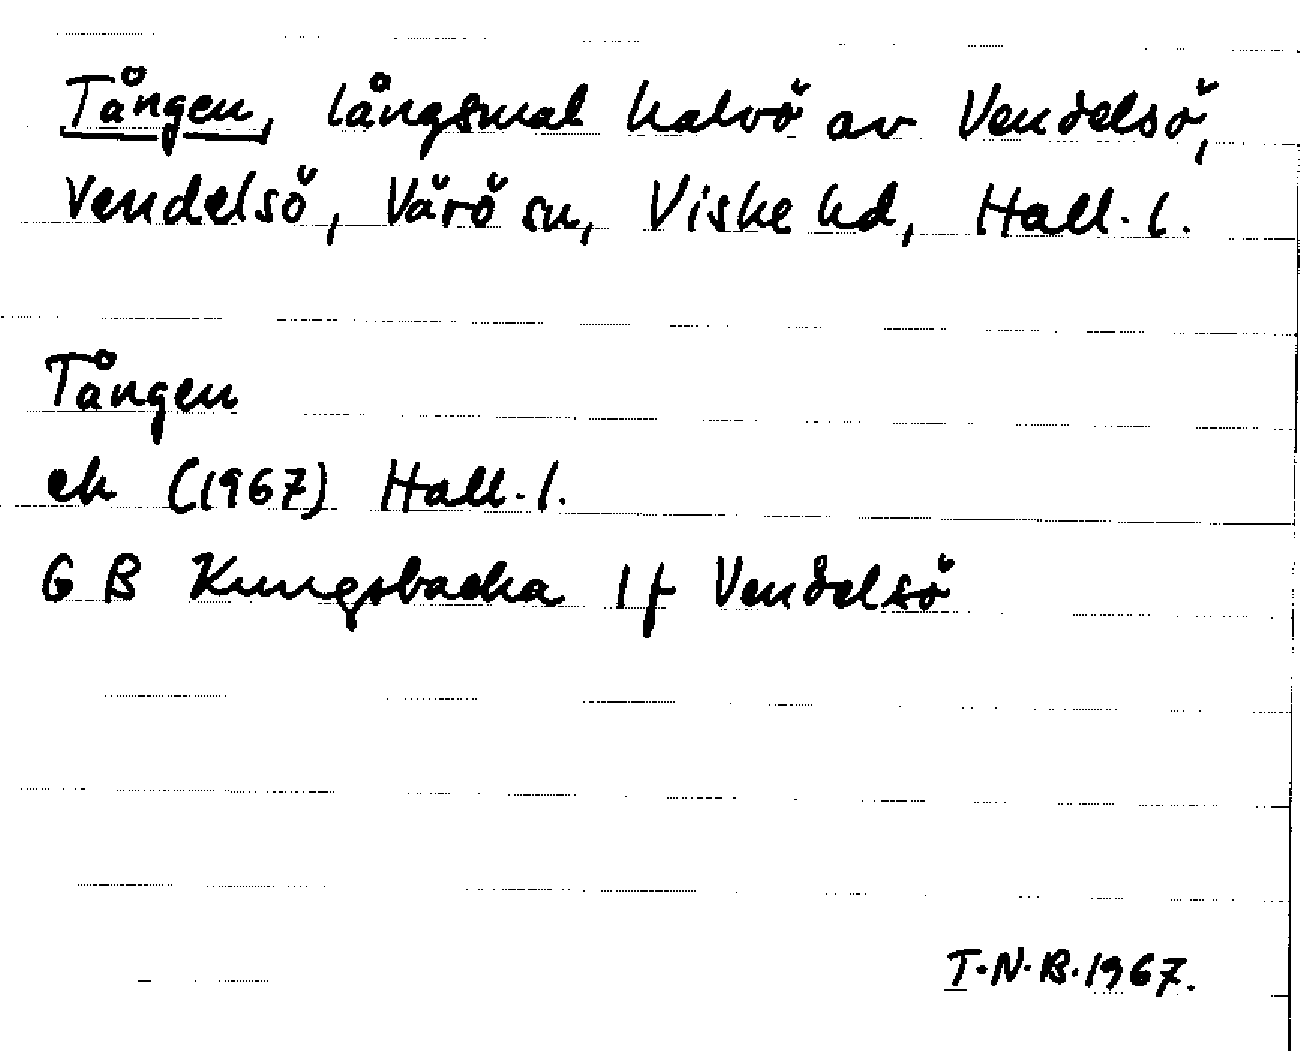 Tången, långsmal halvö av Vendelsö,
Vendelsö, Värö sn, Viske hd, Hall. l.
Tången
ek (1967) Hall. l.
G B Kungsbacka 1 f Vendelsö
T.N.B. 1967.